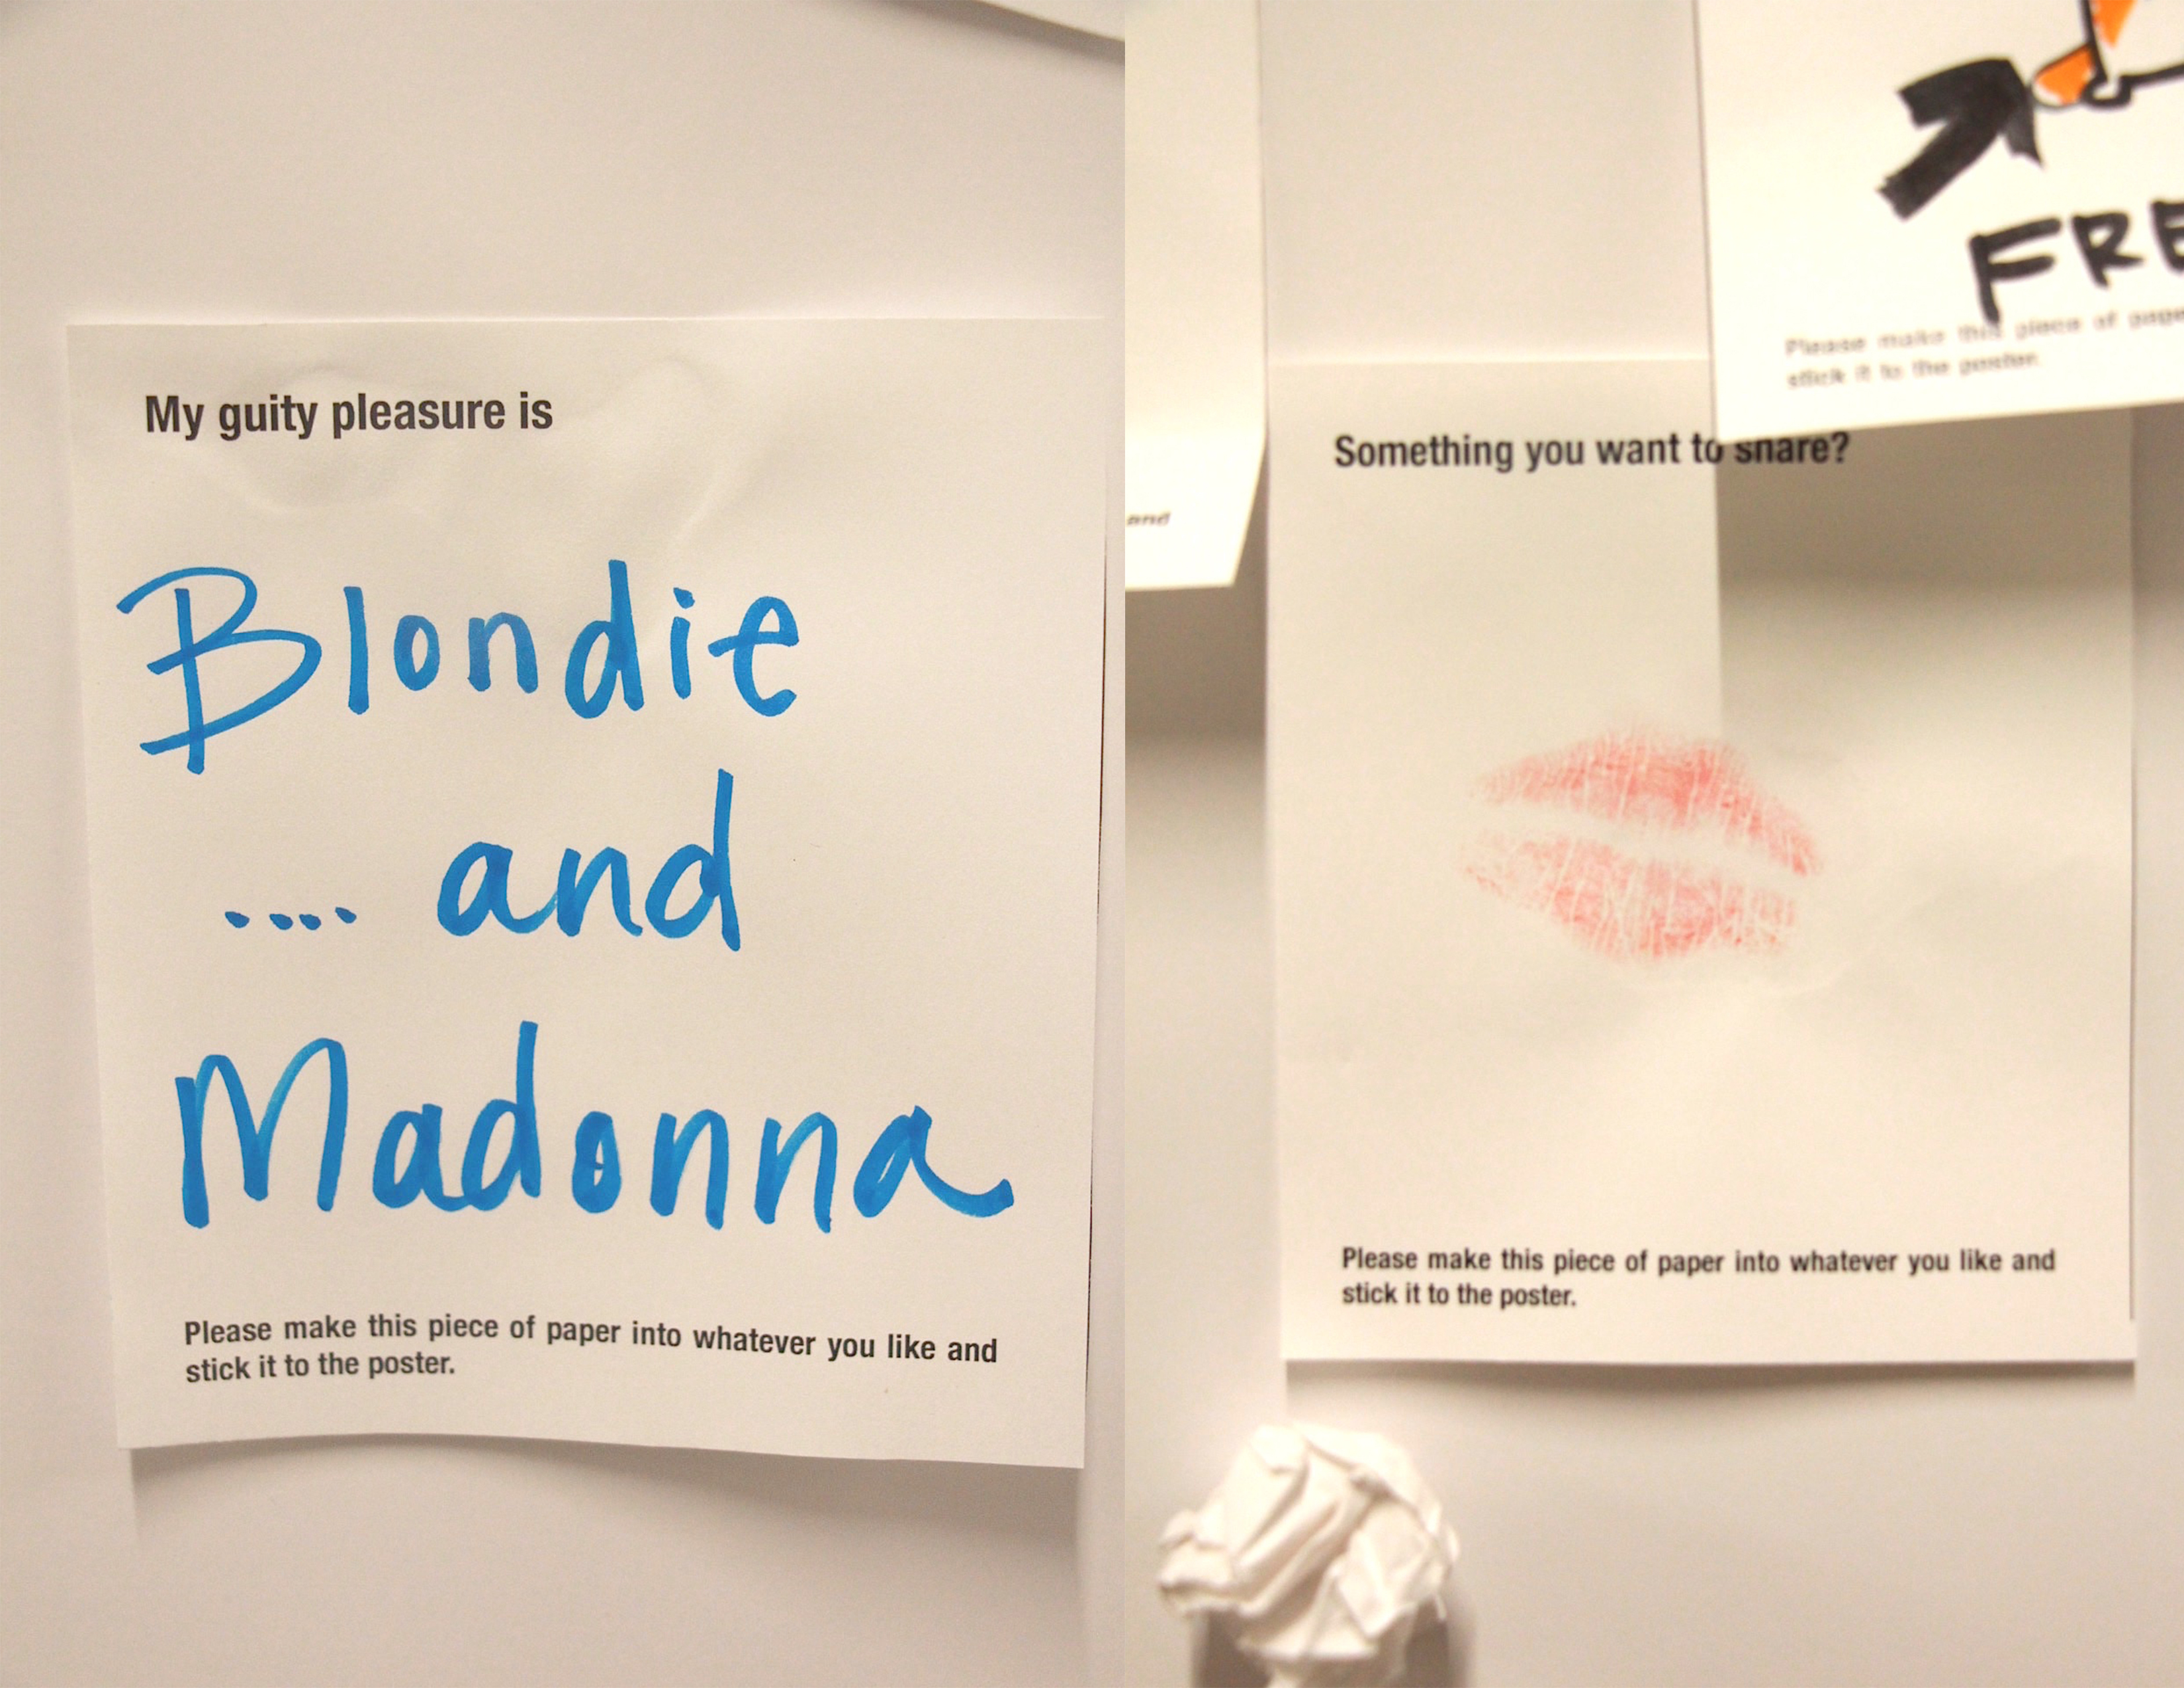 My guity pleasure is
Blondie
.... and
Madonna
Please make this piece of paper into whatever you like and
stick it to the poster.
and
FRE
Please make this piece of pape
stick it to the poster.
Something you want to share?
Please make this piece of paper into whatever you like and
stick it to the poster.